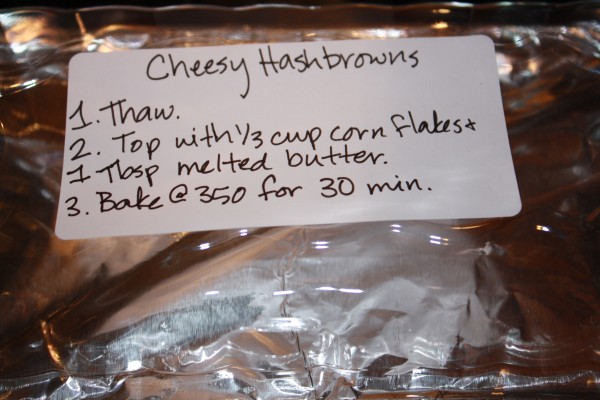 Cheesy Hashbrowns
1. Thaw.
2. Top with 1/3 cup corn flakes +
1 Tbsp melted butter.
3. Bake @ 350 for 30 min.